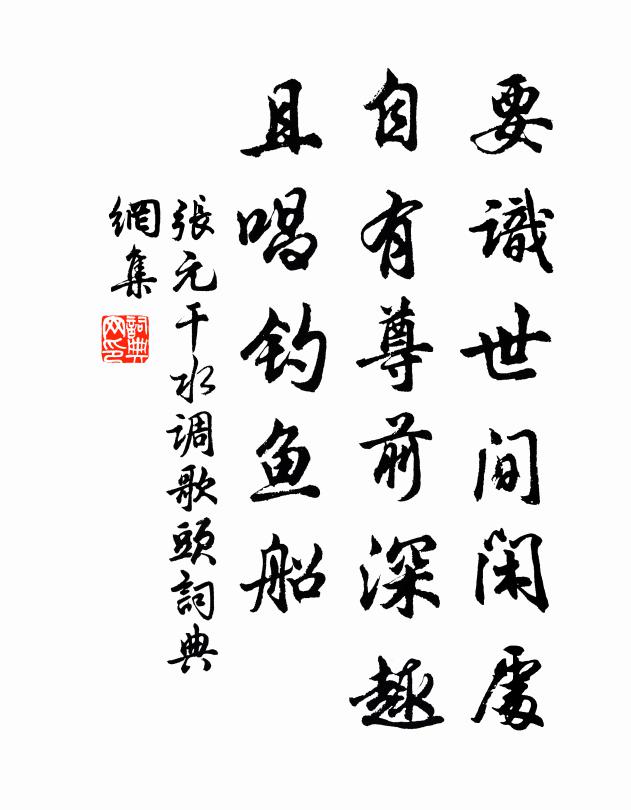 要識世间闲處
自有尊前深趣
且唱钓鱼船
張元干水调歌頭詞典
網集
詞典網印